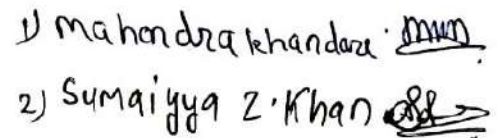 1) Mahendra Khandare
2) Sumaiyya Z. Khan